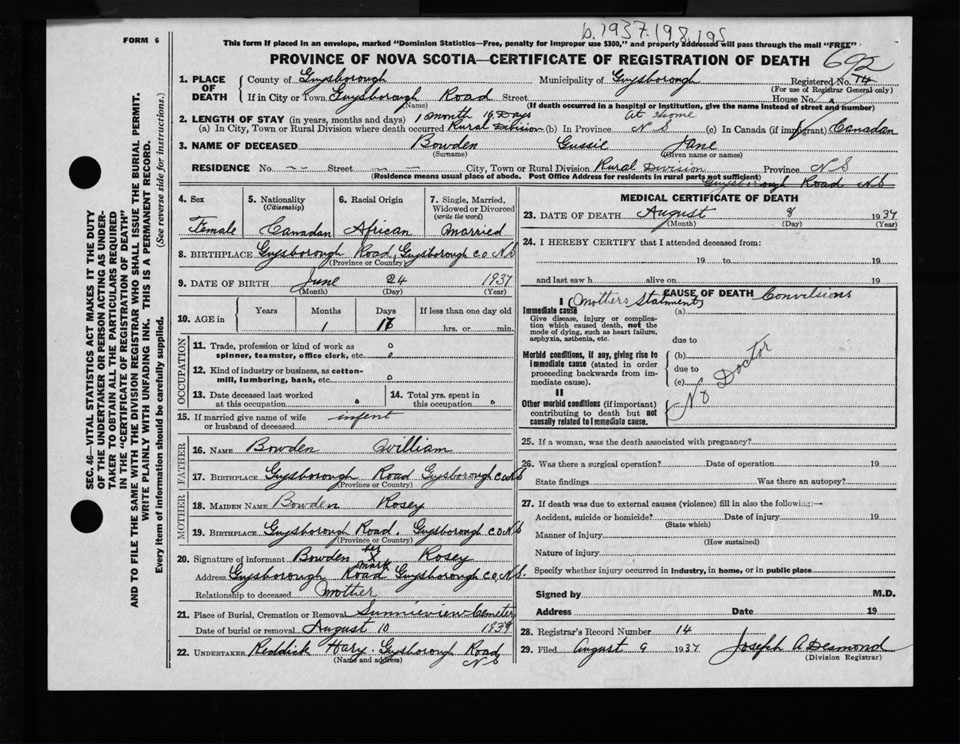 b. 1937.198.195
FORM 6
This form if placed in an envelope, marked "Dominion Statistics—Free, penalty for improper use $300," and properly addressed will pass through the mail "FREE"
692
PROVINCE OF NOVA SCOTIA—CERTIFICATE OF REGISTRATION OF DEATH
Registered No. 14
(For use of Registrar General only)
1. PLACE OF DEATH
County of Guysborough Municipality of Guysborough
If in City or Town Guysborough Road Street House No.
(Name) (If death occurred in a hospital or institution, give the name instead of street and number)
2. LENGTH OF STAY (in years, months and days) 1 month 19 Days At Home
(a) In City, Town or Rural Division where death occurred Rural Division (b) In Province N S (c) In Canada (if immigrant) Canadan
3. NAME OF DECEASED Bowden Gussie Jane
(Surname) (Given name or names)
RESIDENCE No. -- Street -- City, Town or Rural Division Rural Division Province N S
(Residence means usual place of abode. Post Office Address for residents in rural parts not sufficient)
Guysborough Road N S
4. Sex Female
5. Nationality (Citizenship) Canadan
6. Racial Origin African
7. Single, Married, Widowed or Divorced (write the word) Married
8. BIRTHPLACE Guysborough Road, Guysborough C.O N.S
(Province or Country)
9. DATE OF BIRTH June 24 1937
(Month) (Day) (Year)
10. AGE in Years Months Days If less than one day old
1 hrs. or min.
OCCUPATION
11. Trade, profession or kind of work as spinner, teamster, office clerk, etc. o
12. Kind of industry or business, as cotton-mill, lumbering, bank, etc. o
13. Date deceased last worked at this occupation o
14. Total yrs. spent in this occupation o
15. If married give name of wife or husband of deceased infent
FATHER
16. NAME Bowden William
17. BIRTHPLACE Guysborough Road Guysborough C.O N.S
(Province or Country)
MOTHER
18. MAIDEN NAME Bowden Rosey
19. BIRTHPLACE Guysborough Road. Guysborough C.O N.S
(Province or Country)
20. Signature of informant Bowden her X mark Rosey
Address Guysborough Road Guysborough C.O N.S.
Relationship to deceased Mother
21. Place of Burial, Cremation or Removal Sunnieview Cemeter
Date of burial or removal August 10 1937
22. UNDERTAKER Reddick Hary. Guysborough Road N S
(Name and address)
MEDICAL CERTIFICATE OF DEATH
23. DATE OF DEATH August 8 1937
(Month) (Day) (Year)
24. I HEREBY CERTIFY that I attended deceased from:
19 to 19
and last saw h alive on 19
CAUSE OF DEATH
I (Mothers Statment) Convilsions
Immediate cause (a)
Give disease, injury or complication which caused death, not the mode of dying, such as heart failure, asphyxia, asthenia, etc.
due to
Morbid conditions, if any, giving rise to immediate cause (stated in order proceeding backwards from immediate cause).
(b)
due to
(c)
No Doctor
II
Other morbid conditions (if important) contributing to death but not causally related to immediate cause.
25. If a woman, was the death associated with pregnancy?
26. Was there a surgical operation? Date of operation 19
State findings Was there an autopsy?
27. If death was due to external causes (violence) fill in also the following:—
Accident, suicide or homicide? Date of injury 19
(State which)
Manner of injury
(How sustained)
Nature of injury
Specify whether injury occurred in industry, in home, or in public place
Signed by M.D.
Address Date 19
28. Registrar's Record Number 14
29. Filed August 9 1937 Joseph A Desmond
(Division Registrar)
SEC. 46—VITAL STATISTICS ACT MAKES IT THE DUTY
OF THE UNDERTAKER OR PERSON ACTING AS UNDER-
TAKER TO OBTAIN ALL THE PARTICULARS REQUIRED
IN THE "CERTIFICATE OF REGISTRATION OF DEATH"
AND TO FILE THE SAME WITH THE DIVISION REGISTRAR WHO SHALL ISSUE THE BURIAL PERMIT.
WRITE PLAINLY WITH UNFADING INK. THIS IS A PERMANENT RECORD.
Every item of information should be carefully supplied. (See reverse side for instructions.)